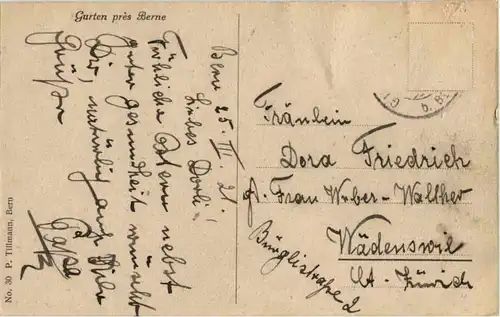 Gurten près Berne
Bern 25. III. 21.
Liebes Dorli!
Fröhliche Ostern nebst
guter Gesundheit wünscht
Dir natürlich auch Diele
Grüsse
Papa
Fräulein
Dora Friedrich
Frau Weber-Walther
Bürglistraße 2
Wädenswil
Ct. Zürich
No. 30 P. Tillmann, Bern